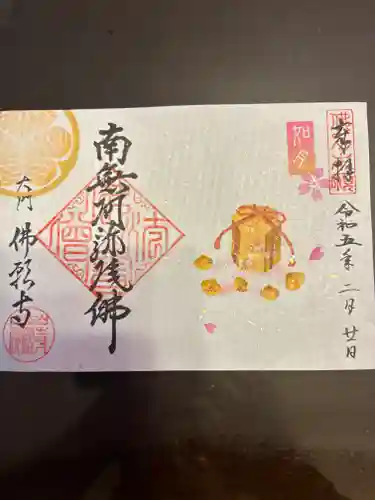 奉拝
令和五年二月廿日
如月
南無阿弥陀佛
大門
佛願寺